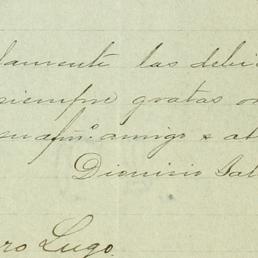 damente las debi
siempre gratas o
su afmo. amigo & at
Dionisio Sal
ro Lugo.